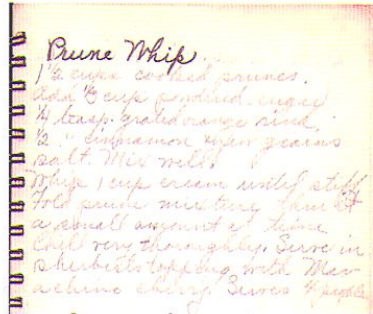 Prune Whip
1 ½ cups cooked prunes.
Add ⅓ cup powdered sugar
¼ teasp. grated orange rind.
½ " cinnamon few grains
salt. Mix well.
Whip 1 cup cream until stiff
Fold prune mixture into it
a small amount at time
Chill very thoroughly. Serve in
sherbets topping with Mar-
achino cherry. Serves 4 people